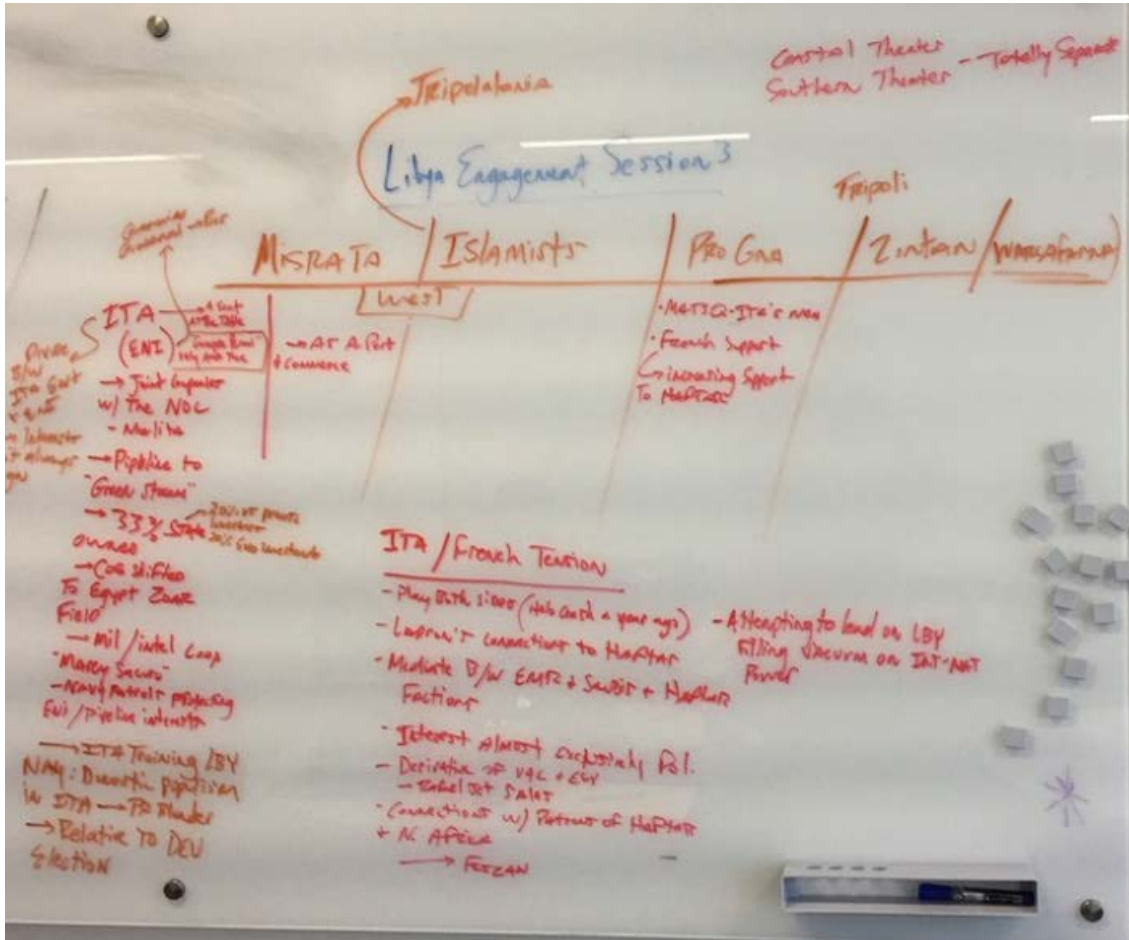 Coastal Theater
Southern Theater -- Totally Separate
Tripolatania
Libya Engagement Session 3
Tripoli
MISRATA / ISlamists / PRO GNA / Zintan / WARSAfANNA
West
ITA → A Seat
At The Table
(ENI)
→ Joint Companies
w/ The NOC
- Melita
→ Pipeline to
"Green Stream"
→ 33% State
owned
→ COG Shifted
To Egypt Zohr
Field
→ Mil/intel Coop
"Marey Secure"
- Navy Patrols protecting
ENI/Pipeline interests
→ ITA Training LBY
NAV: Domestic populism
in ITA →
→ Relative TO DEU
Election
B/W
ITA Govt
→ AT A Port
+ Commerce
• ITA's man
• French Support
↳ increasing Support
To Haftar
ITA/French Tension
- Play Both sides (a year ago)
- connections to Haftar
- Mediate B/W + + Haftar
Factions
- Interest Almost Exclusively Pol.
- Derivative of
- Sales
- Connections w/ Patrons of Haftar
+ N. Africa
→ FEZZAN
- Attempting to lead on LBY
Filling Vacuum on INT-NAT
Power